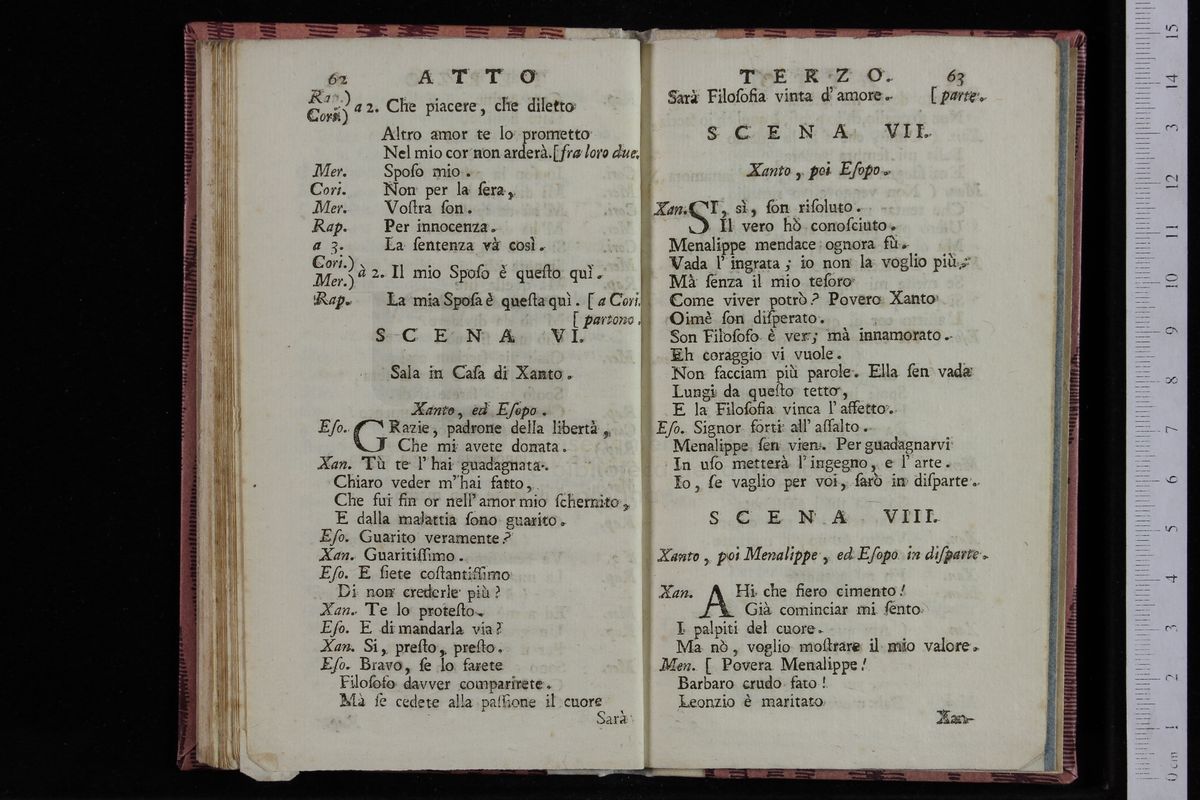 62 ATTO
Rap.)
Cori.) a 2. Che piacere, che diletto
Altro amor te lo prometto
Nel mio cor non arderà. [fra loro due.
Mer. Sposo mio.
Cori. Non per la sera,
Mer. Vostra son.
Rap. Per innocenza.
a 3. La sentenza và così.
Cori.)
Mer.) à 2. Il mio Sposo è questo quì.
Rap. La mia Sposa è questa quì. [a Cori.
[partono.
SCENA VI.
Sala in Casa di Xanto.
Xanto, ed Esopo.
Eso. GRazie, padrone della libertà,
Che mi avete donata.
Xan. Tù te l'hai guadagnata.
Chiaro veder m'hai fatto,
Che fui fin or nell'amor mio schernito,
E dalla malattia sono guarito.
Eso. Guarito veramente?
Xan. Guaritissimo.
Eso. E siete costantissimo
Di non crederle più?
Xan. Te lo protesto.
Eso. E di mandarla via?
Xan. Si, presto, presto.
Eso. Bravo, se lo farete
Filosofo davver comparirete.
Mà se cedete alla passione il cuore
Sarà
TERZO. 63
Sarà Filosofia vinta d'amore. [parte.
SCENA VII.
Xanto, poi Esopo.
Xan. SI, sì, son risoluto.
Il vero hò conosciuto.
Menalippe mendace ognora fù.
Vada l'ingrata; io non la voglio più;
Mà senza il mio tesoro
Come viver potrò? Povero Xanto
Oimè son disperato.
Son Filosofo è ver; mà innamorato.
Eh coraggio vi vuole.
Non facciam più parole. Ella sen vada
Lungi da questo tetto,
E la Filosofia vinca l'affetto.
Eso. Signor forti all'assalto.
Menalippe sen vien. Per guadagnarvi
In uso metterà l'ingegno, e l'arte.
Io, se vaglio per voi, sarò in disparte.
SCENA VIII.
Xanto, poi Menalippe, ed Esopo in disparte.
Xan. AHi che fiero cimento!
Già cominciar mi sento
I palpiti del cuore.
Ma nò, voglio mostrare il mio valore.
Men. [Povera Menalippe!
Barbaro crudo fato!
Leonzio è maritato
Xan-
15
14
13
12
11
10
9
8
7
6
5
4
3
2
1
0 cm